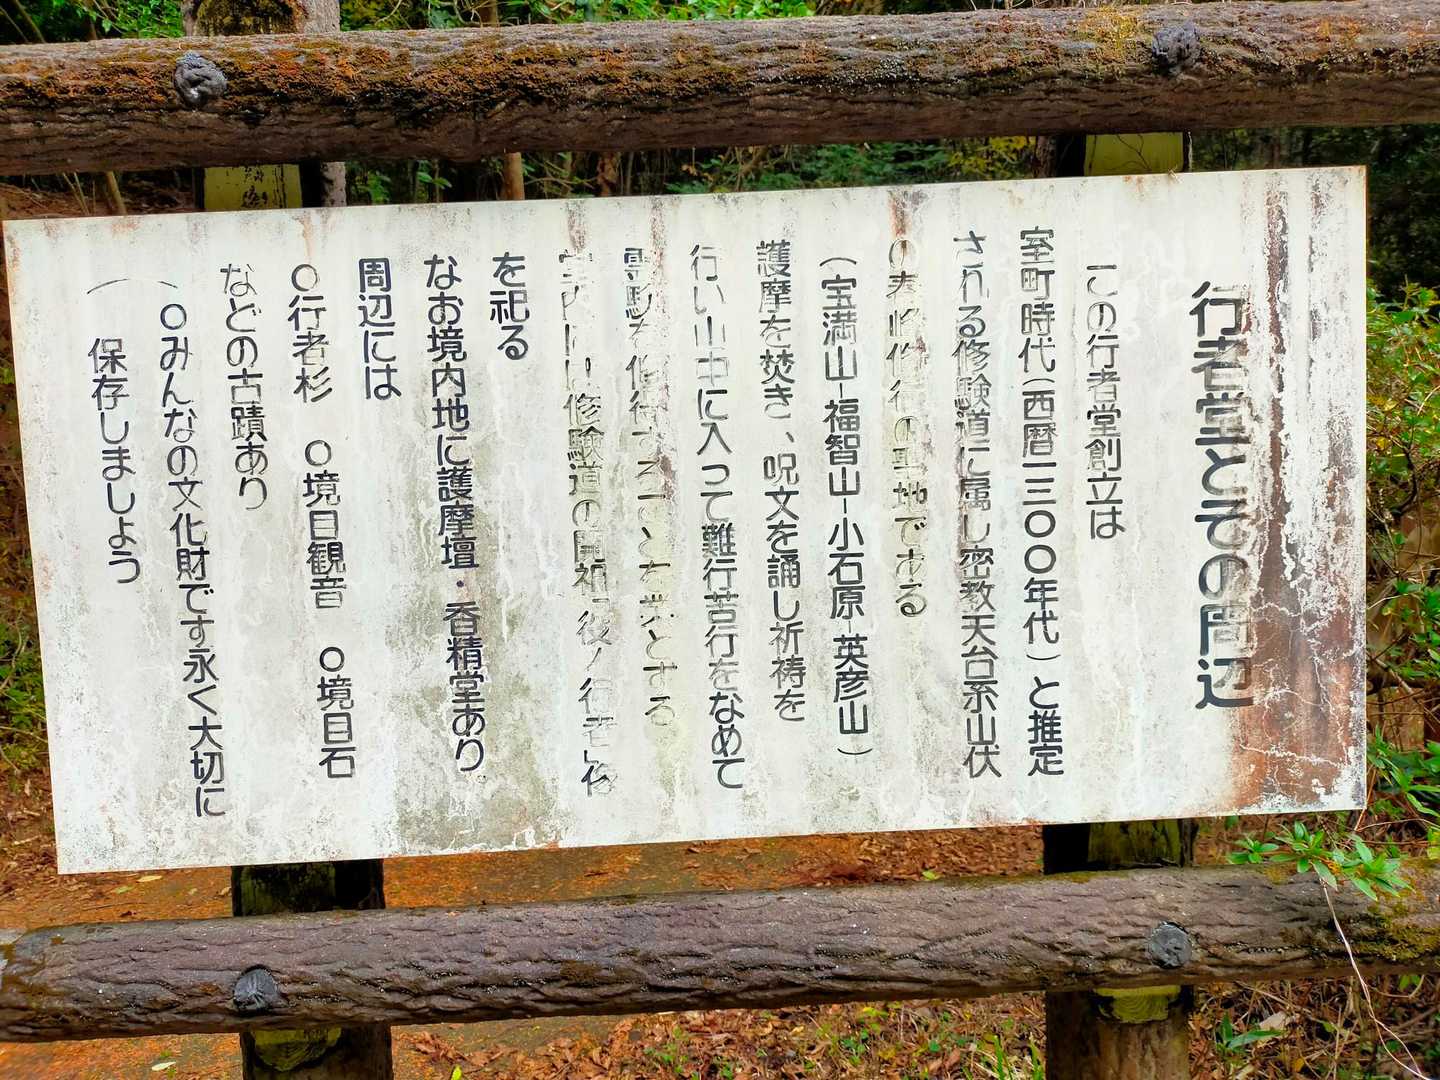 行者堂とその周辺
この行者堂創立は
室町時代(西暦一三〇〇年代)と推定
される修験道に属し密教天台系山伏
の春峰修行の聖地である
(宝満山-福智山-小石原-英彦山)
護摩を焚き、呪文を誦し祈祷を
行い山中に入って難行苦行をなめて
霊験を修得することを業とする
堂内には修験道の開祖役ノ行者像
を祀る
なお境内地に護摩壇・香精堂あり。
周辺には
〇行者杉 〇境目観音 〇境目石
などの古蹟あり
〇みんなの文化財です永く大切に
保存しましょう